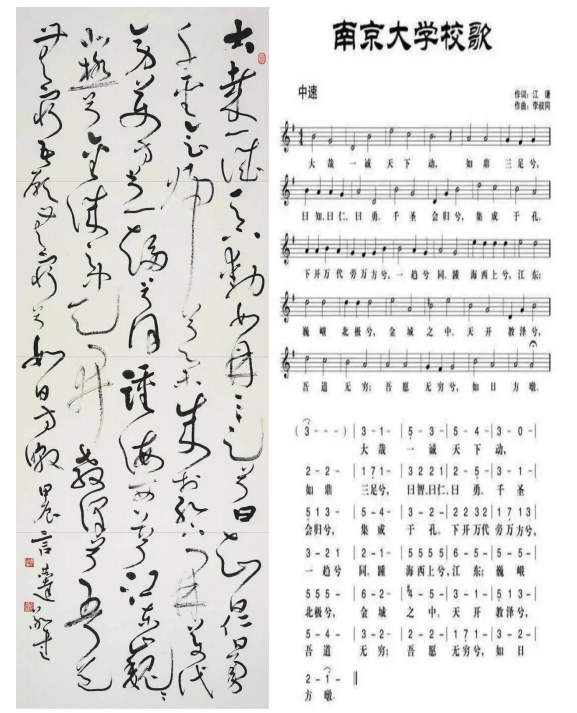 大哉一诚天下动如鼎三足兮曰知曰仁曰勇
千圣会归兮集成于孔下开万代
旁万方兮一趋兮同踵海西上兮江东巍巍
北极兮金城之中天开教泽兮吾道
无穷吾愿无穷兮如日方暾 言恭达
南京大学校歌
中速
作词:江谦
作曲:李叔同
大哉一诚天下动, 如鼎三足兮,
曰知,曰仁,曰勇。千圣会归兮,集成于孔。
下开万代旁万方兮,一趋兮同。踵海西上兮,江东;
巍峨北极兮,金城之中。天开教泽兮,
吾道无穷;吾愿无穷兮,如日方暾。
(3---)| 3-1-| 5-3-| 5-4-| 3-0-|
大哉一诚天下动,
2-2-| 171-| 3221| 2-5-| 3-1-|
如鼎三足兮,曰智,曰仁,曰勇。千圣
513-| 5-4-| 3-2-| 2232| 1713|
会归兮,集成于孔。下开万代旁万方兮,
3-21| 2-1-| 5555| 6-5-| 5-5-|
一趋兮同。踵海西上兮,江东;巍峨
555-| 6-2-| #4-5-| 3-1-| 513-|
北极兮,金城之中。天开教泽兮,
5-4-| 3-2-| 2-2-| 171-| 3-2-|
吾道无穷;吾愿无穷兮,如日
2-1-‖
方暾。